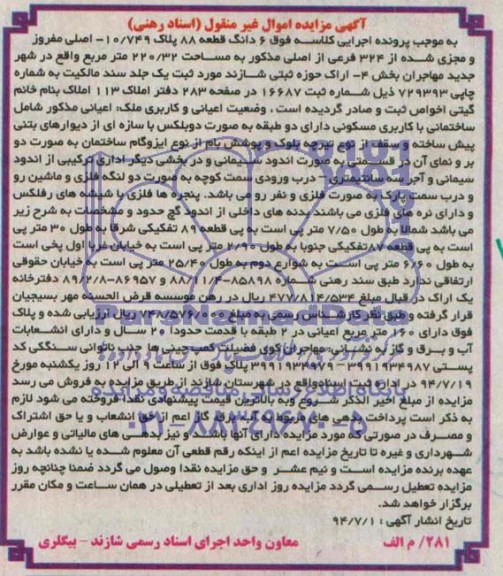 آگهی مزایده اموال غیر منقول (اسناد رهنی)
به موجب پرونده اجرایی کلاسه فوق ۶ دانگ قطعه ۸۸ پلاک ۱۰/۷۴۹- اصلی مفروز
و مجزی شده از ۳۲۴ فرعی از اصلی مذکور به مساحت ۲۲۰/۳۲ متر مربع واقع در شهر
جدید مهاجران بخش ۴- اراک حوزه ثبتی شازند مورد ثبت یک جلد سند مالکیت به شماره
چاپی ۷۲۹۳۹۳ ذیل شماره ثبت ۱۶۶۸۷ در صفحه ۲۸۳ دفتر املاک ۱۱۳ املاک بنام خانم
گیتی اخواص ثبت و صادر گردیده است ، وضعیت اعیانی و کاربری ملک: اعیانی مذکور شامل
ساختمانی با کاربری مسکونی دارای دو طبقه به صورت دوبلکس با سازه ای از دیوارهای بتنی
پیش ساخته و سقف از نوع تیرچه بلوک و پوشش بام از نوع ایزوگام ساختمان به صورت دو
بر و نمای آن در قسمتی به صورت اندود سیمانی و در بخشی دیگر اداری ترکیبی از اندود
سیمانی و آجر سه سانتیمتری - درب ورودی سمت کوچه به صورت دو لنگه فلزی و ماشین رو
و درب سمت پارک به صورت فلزی و نفر رو می باشد. پنجره ها فلزی با شیشه های رفلکس
و دارای نره های فلزی می باشند بدنه های داخلی از اندود گچ حدود و مشخصات به شرح زیر
می باشد شمالا به طول ۷/۵۰ متر پی است به پی قطعه ۸۹ تفکیکی شرقا به طول ۳۰ متر پی
است به پی قطعه ۸۷ تفکیکی جنوبا به طول ۲/۹۰ متر پی است به خیابان غربا اول پخی است
به طول ۶/۶۰ متر پی است به شوارع دوم به طول ۲۵/۴۰ متر پی است به خیابان حقوقی
ارتفاقی ندارد طبق سند رهنی شماره ۸۵۸۹۸-۸۸/۱۱/۴ و ۸۶۹۵۷-۸۹/۲/۸ دفترخانه
یک اراک در قبال مبلغ ۴۷۷/۸۱۴/۵۳۴ ریال در رهن موسسه قرض الحسنه مهر بسیجیان
قرار گرفته و طبق نظر کارشناس رسمی به مبلغ ۷۴۸/۵۷۶/۰۰۰ ریال ارزیابی شده و پلاک
فوق دارای ۱۶۰ متر مربع اعیانی در ۲ طبقه با قدمت حدودا ۲۰ سال و دارای انشعابات
آب و برق و گاز به نشانی مهاجران کوی فضیلت کمب چینی ها جنب نانوایی سنگکی کد
پستی ۳۹۹۱۹۳۴۹۸۷ - ۳۹۹۱۹۳۴۹۷۹ پلاک فوق از ساعت ۹ الی ۱۲ روز یکشنبه مورخ
۹۴/۷/۱۹ در اداره ثبت اسناد واقع در شهرستان شازند از طریق مزایده به فروش می رسد
مزایده از مبلغ اخیر الذکر شروع و به بالاترین قیمت پیشنهادی نقدا فروخته می شود لازم
به ذکر است پرداخت بدهی های مربوط به آب برق گاز اعم از حق انشعاب و یا حق اشتراک
و مصرف در صورتی که مورد مزایده دارای آنها باشند و نیز بدهی های مالیاتی و عوارض
شهرداری و غیره تا تاریخ مزایده اعم از اینکه رقم قطعی آن معلوم شده یا نشده باشد به
عهده برنده مزایده است و نیم عشر و حق مزایده نقدا وصول می گردد ضمنا چنانچه روز
مزایده تعطیل رسمی گردد مزایده روز اداری بعد از تعطیلی در همان ساعت و مکان مقرر
برگزار خواهد شد.
تاریخ انتشار آگهی : ۹۴/۷/۱
۲۸۱/ م الف
معاون واحد اجرای اسناد رسمی شازند - بیگلری
۰۲۱-۸۸۳۴۹۶۷۰-۵